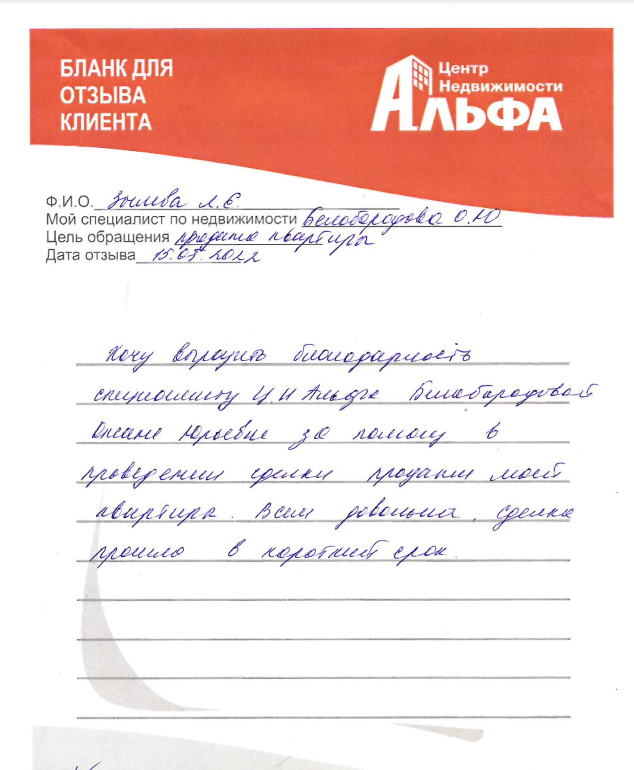 БЛАНК ДЛЯ
ОТЗЫВА
КЛИЕНТА
Центр
Недвижимости
АЛЬФА
Ф.И.О. Л.Е.
Мой специалист по недвижимости Белобородова О.Ю
Цель обращения продажа квартиры
Дата отзыва 15.05.2022
Хочу выразить благодарность
специалисту Ц.Н Альфа Белобородовой
Оксане Юрьевне за помощь в
проведении сделки продажи моей
квартиры. Всем довольна, сделка
прошла в короткий срок.